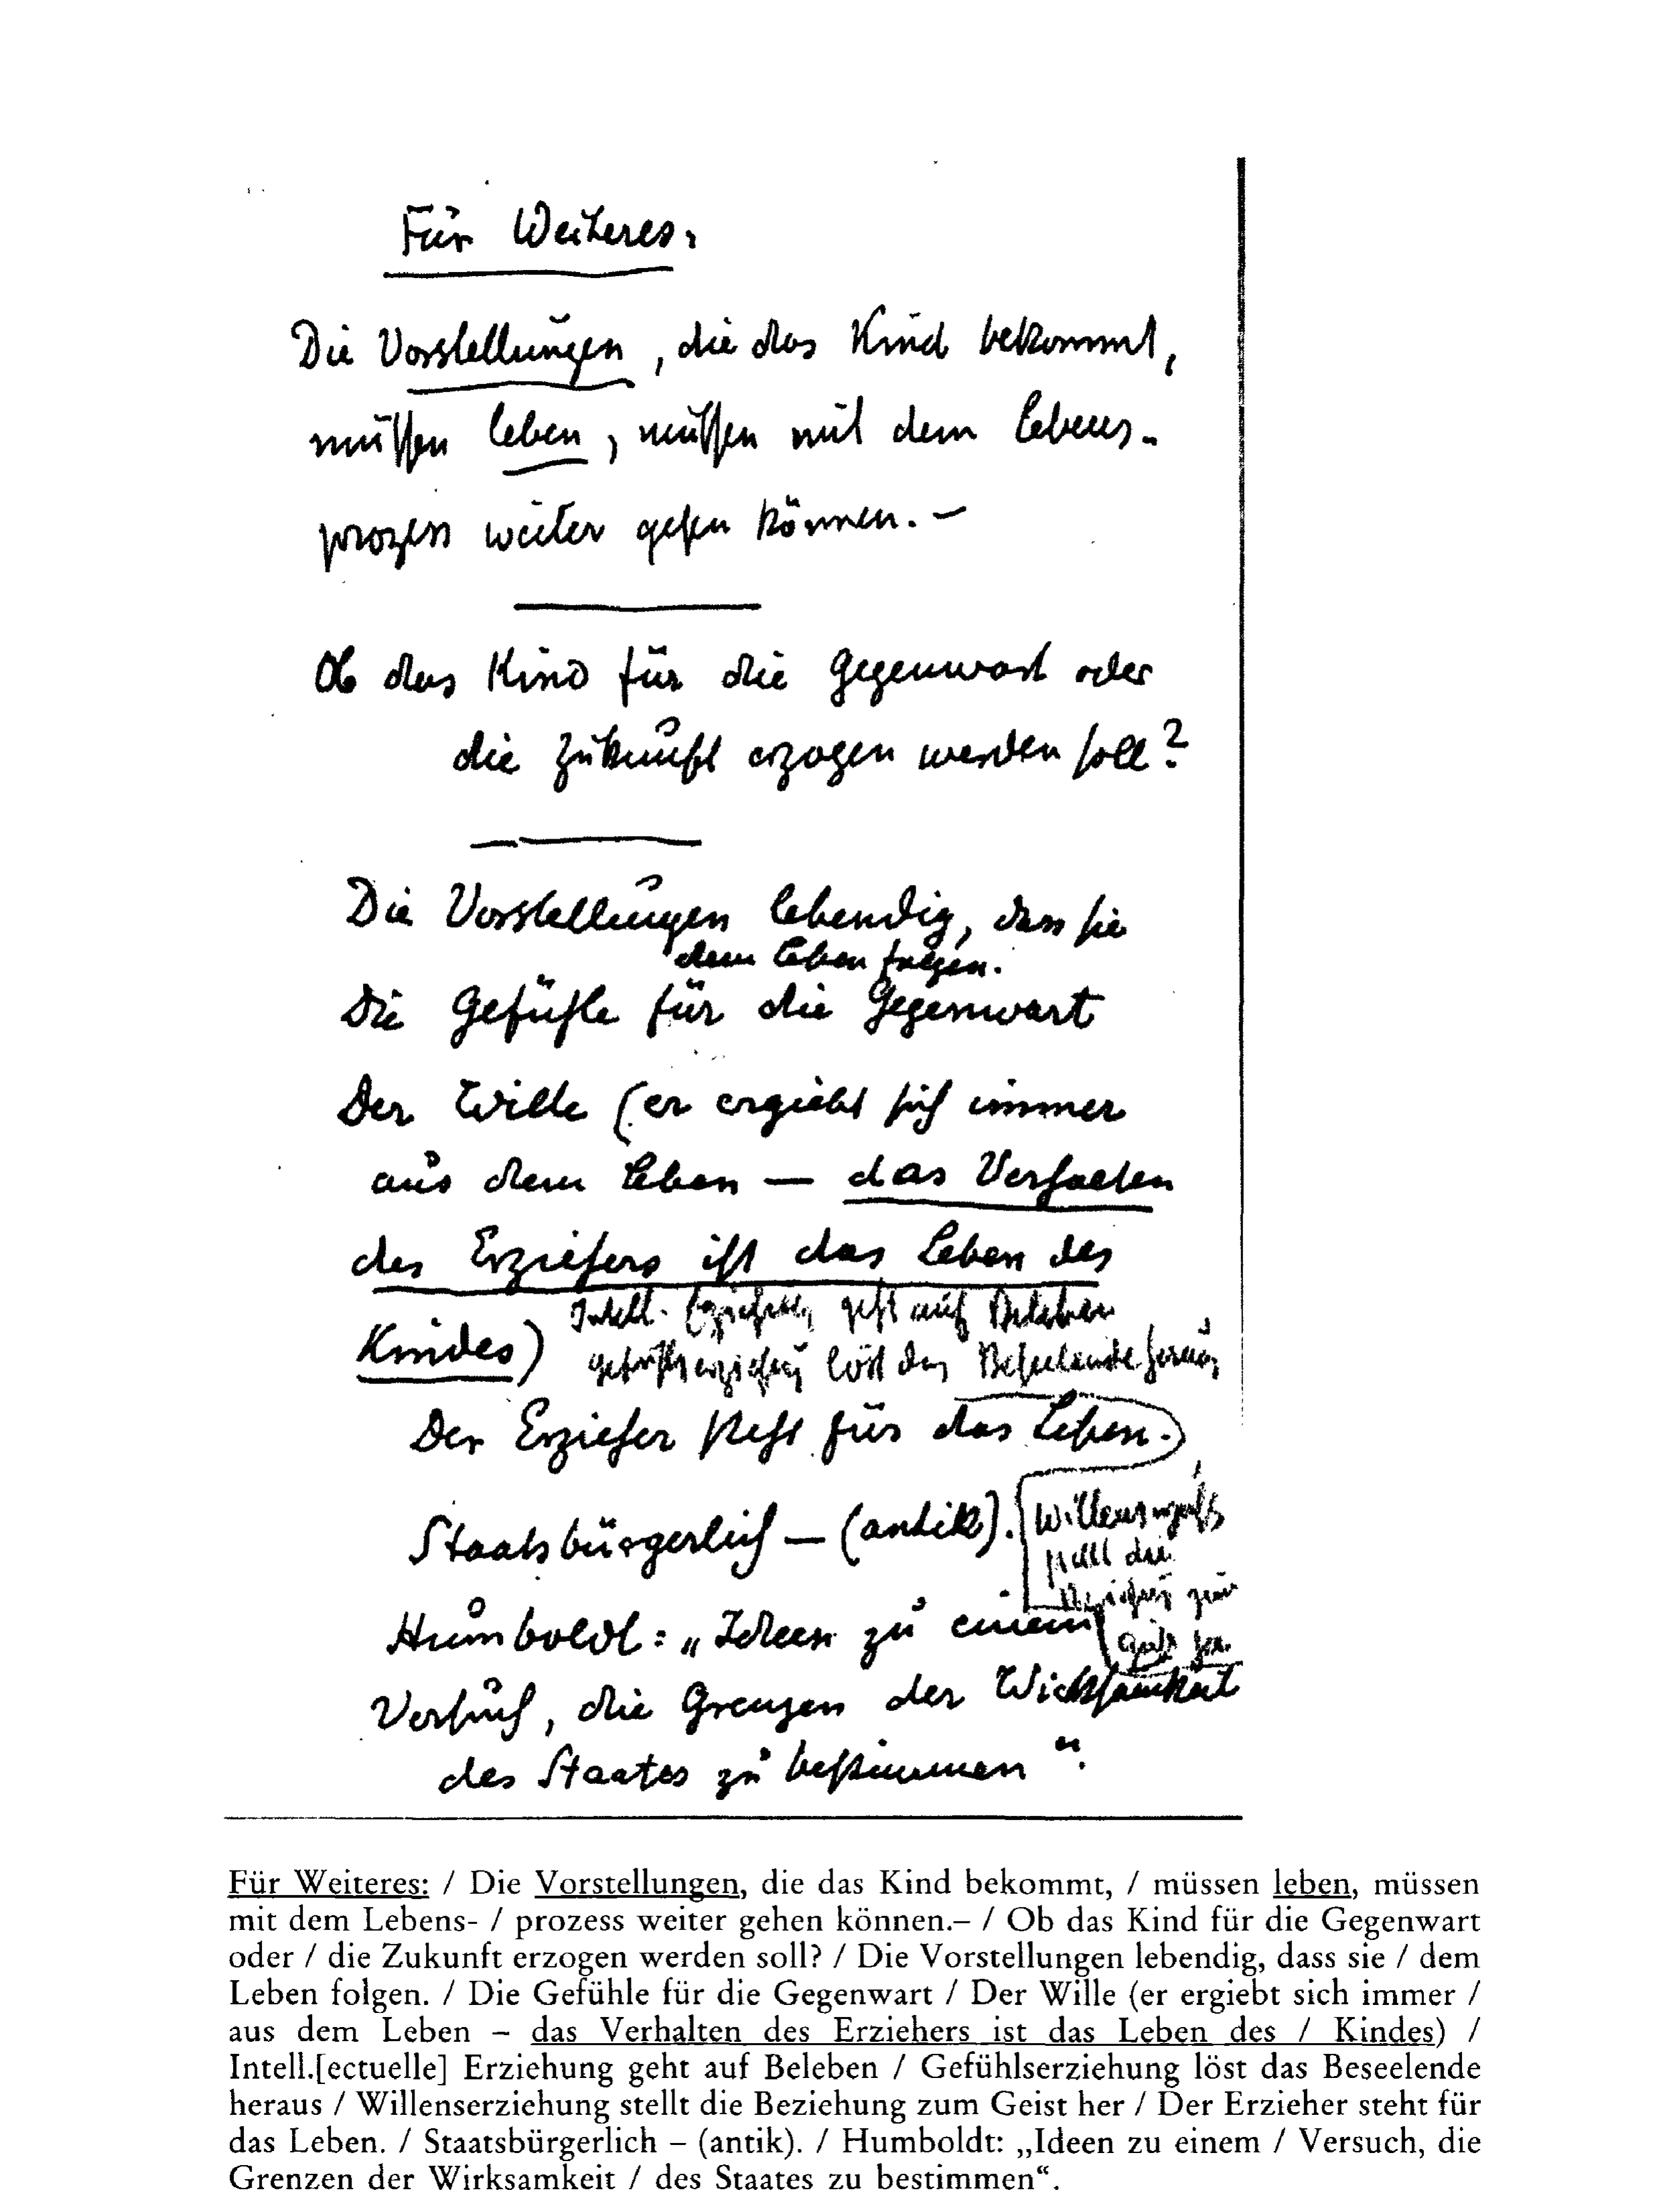 Für Weiteres:
Die Vorstellungen, die das Kind bekommt,
müssen leben, müssen mit dem Lebens-
prozess weiter gehen können. –
Ob das Kind für die Gegenwart oder
die Zukunft erzogen werden soll?
Die Vorstellungen lebendig, dass sie
dem Leben folgen.
Die Gefühle für die Gegenwart
Der Wille (er ergiebt sich immer
aus dem Leben – das Verhalten
des Erziehers ist das Leben des
Kindes)
Intell. Erziehung geht auf Beleben
Gefühlserziehung löst das Beseelende heraus
Der Erzieher steht für das Leben.
Staatsbürgerlich – (antik).
Willenserziehg
stellt die
Beziehung zum
Geist her
Humboldt: „Ideen zu einem
Versuch, die Grenzen der Wirksamkeit
des Staates zu bestimmen“.
Für Weiteres: / Die Vorstellungen, die das Kind bekommt, / müssen leben, müssen
mit dem Lebens- / prozess weiter gehen können.– / Ob das Kind für die Gegenwart
oder / die Zukunft erzogen werden soll? / Die Vorstellungen lebendig, dass sie / dem
Leben folgen. / Die Gefühle für die Gegenwart / Der Wille (er ergiebt sich immer /
aus dem Leben – das Verhalten des Erziehers ist das Leben des / Kindes) /
Intell.[ectuelle] Erziehung geht auf Beleben / Gefühlserziehung löst das Beseelende
heraus / Willenserziehung stellt die Beziehung zum Geist her / Der Erzieher steht für
das Leben. / Staatsbürgerlich – (antik). / Humboldt: „Ideen zu einem / Versuch, die
Grenzen der Wirksamkeit / des Staates zu bestimmen“.